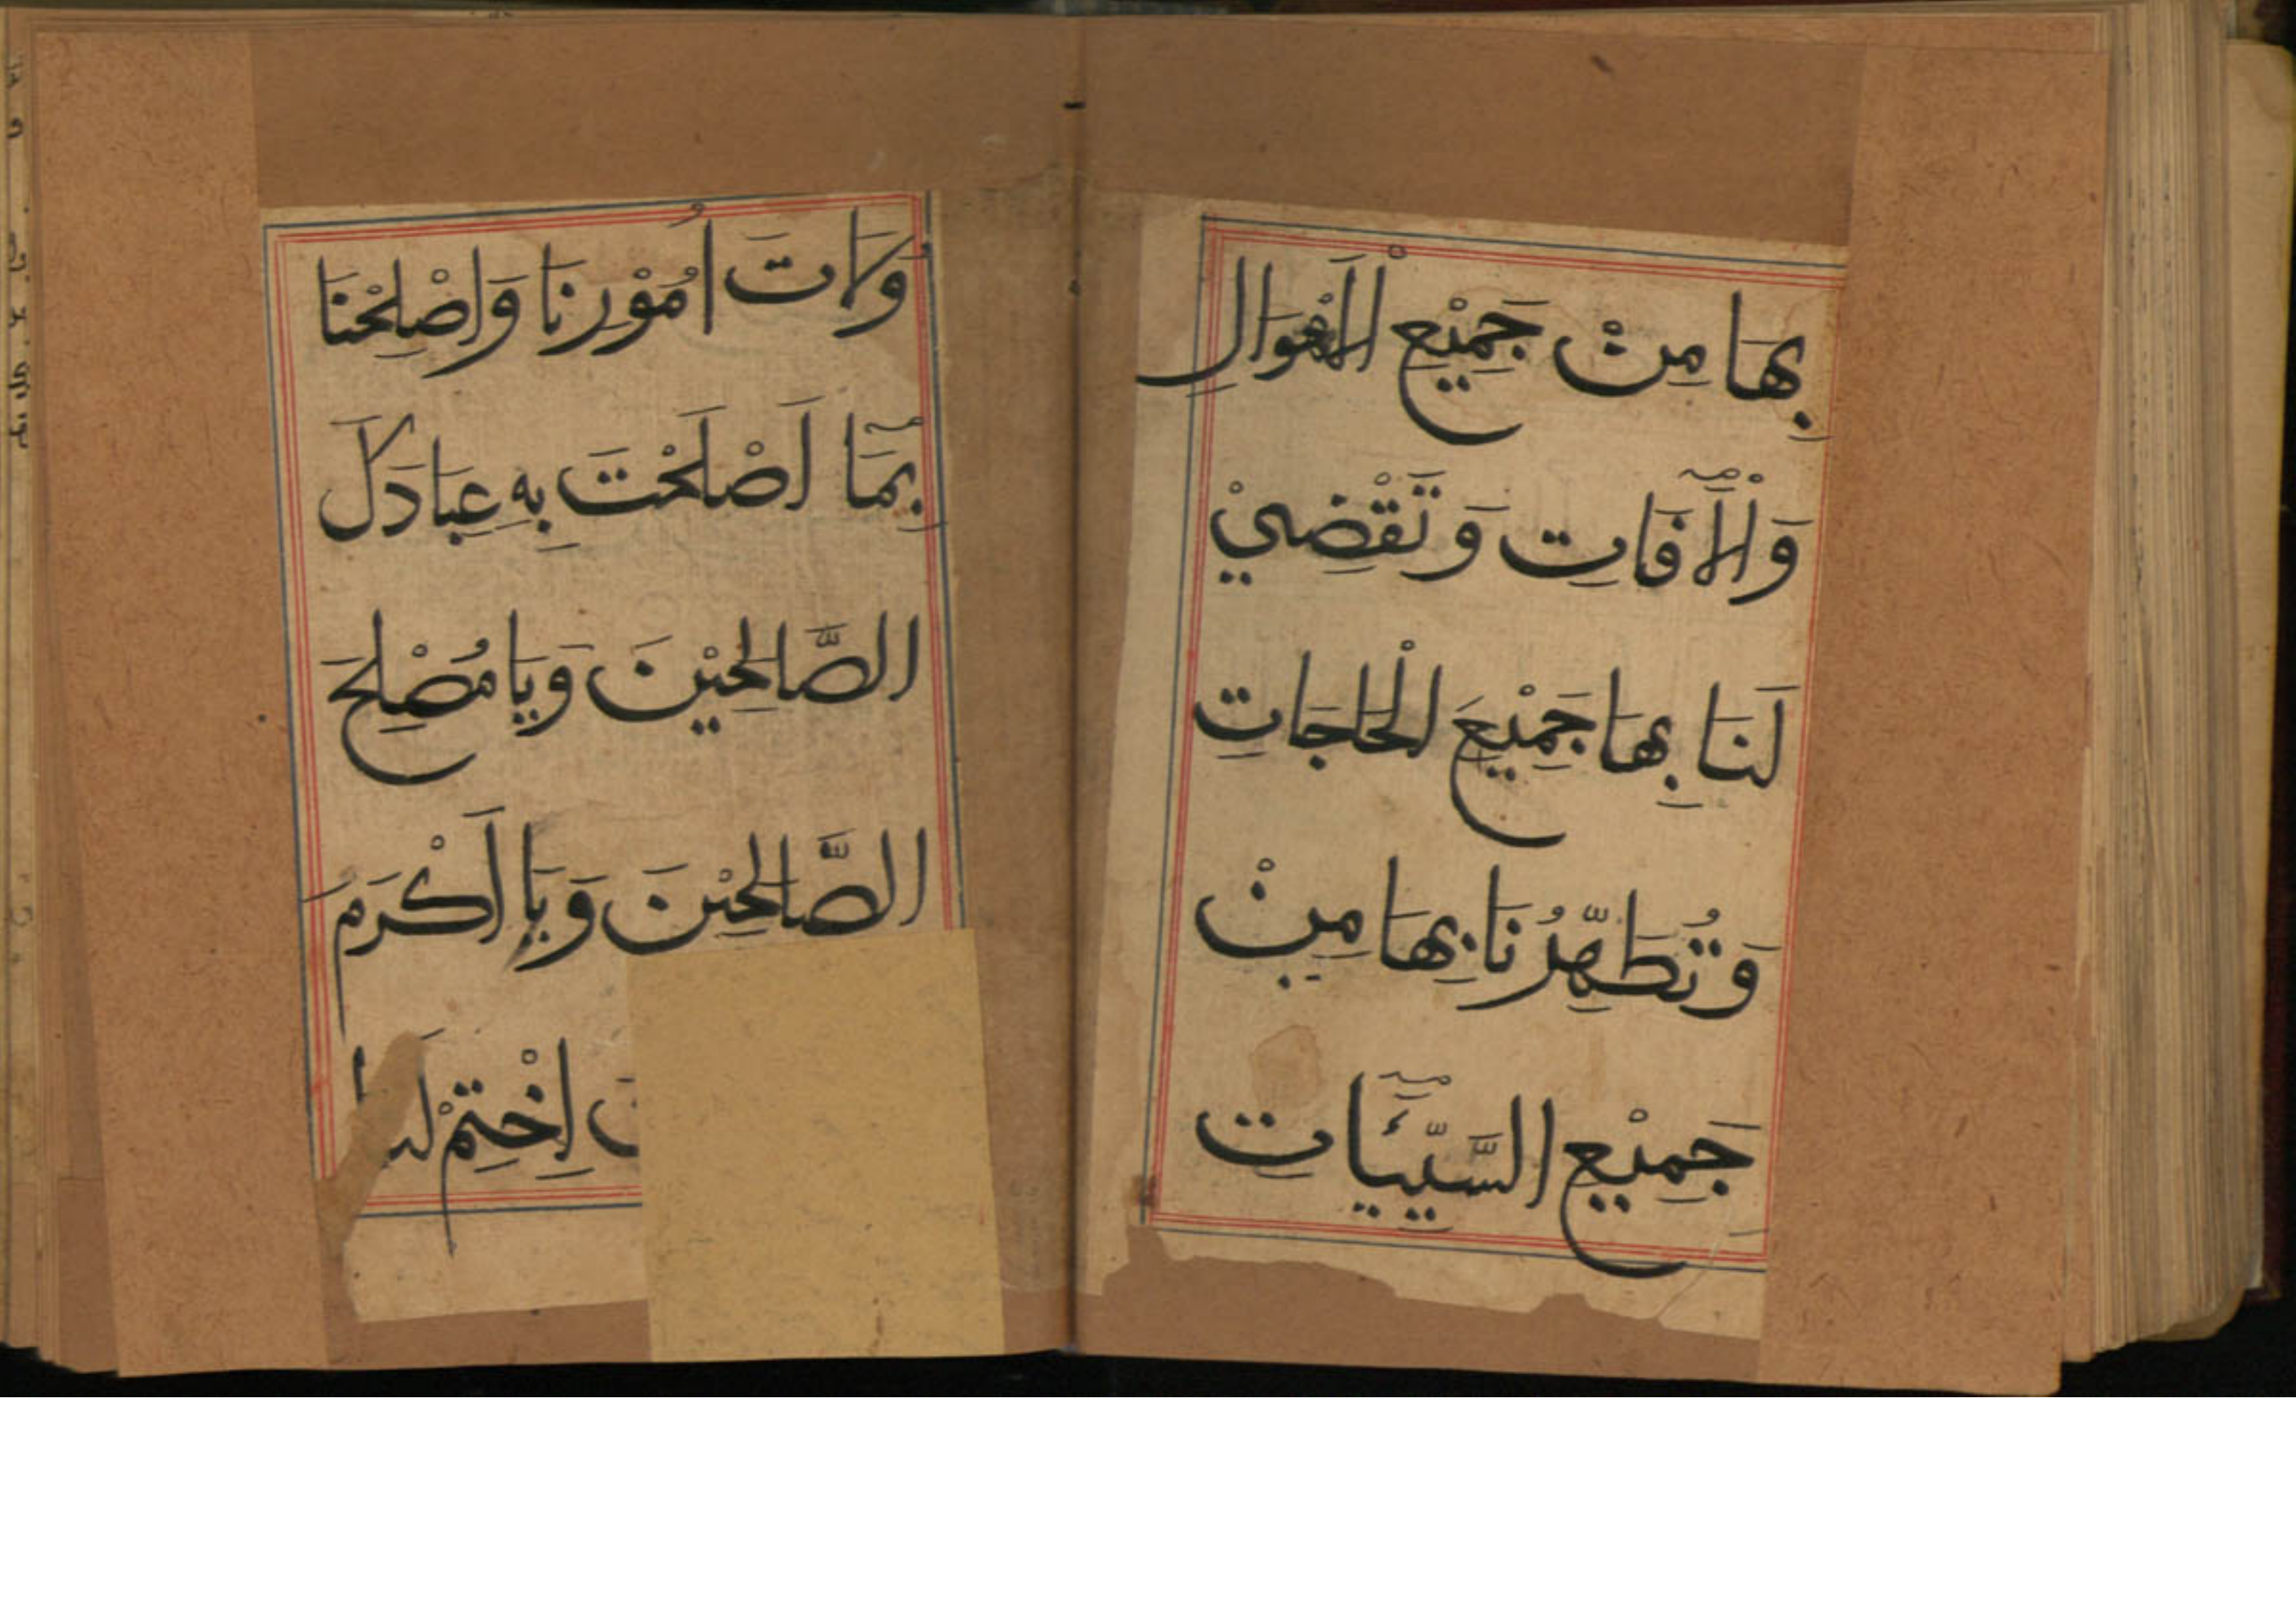 بِهَا مِنْ جَمِيْعِ الْاَهْوَالِ
وَالْاٰفَاتِ وَتَقْضِيْ
لَنَا بِهَا جَمِيْعَ الْحَاجَاتِ
وَتُطَهِّرُنَا بِهَا مِنْ
جَمِيْعِ السَّيِّئَاتِ
وَلَاتَ اُمُوْرِنَا وَاصْلِحْنَا
بِمَا اَصْلَحْتَ بِهِ عِبَادَكَ
الصَّالِحِيْنَ وَيَا مُصْلِحَ
الصَّالِحِيْنَ وَيَا اَكْرَمَ
اِخْتِمْ